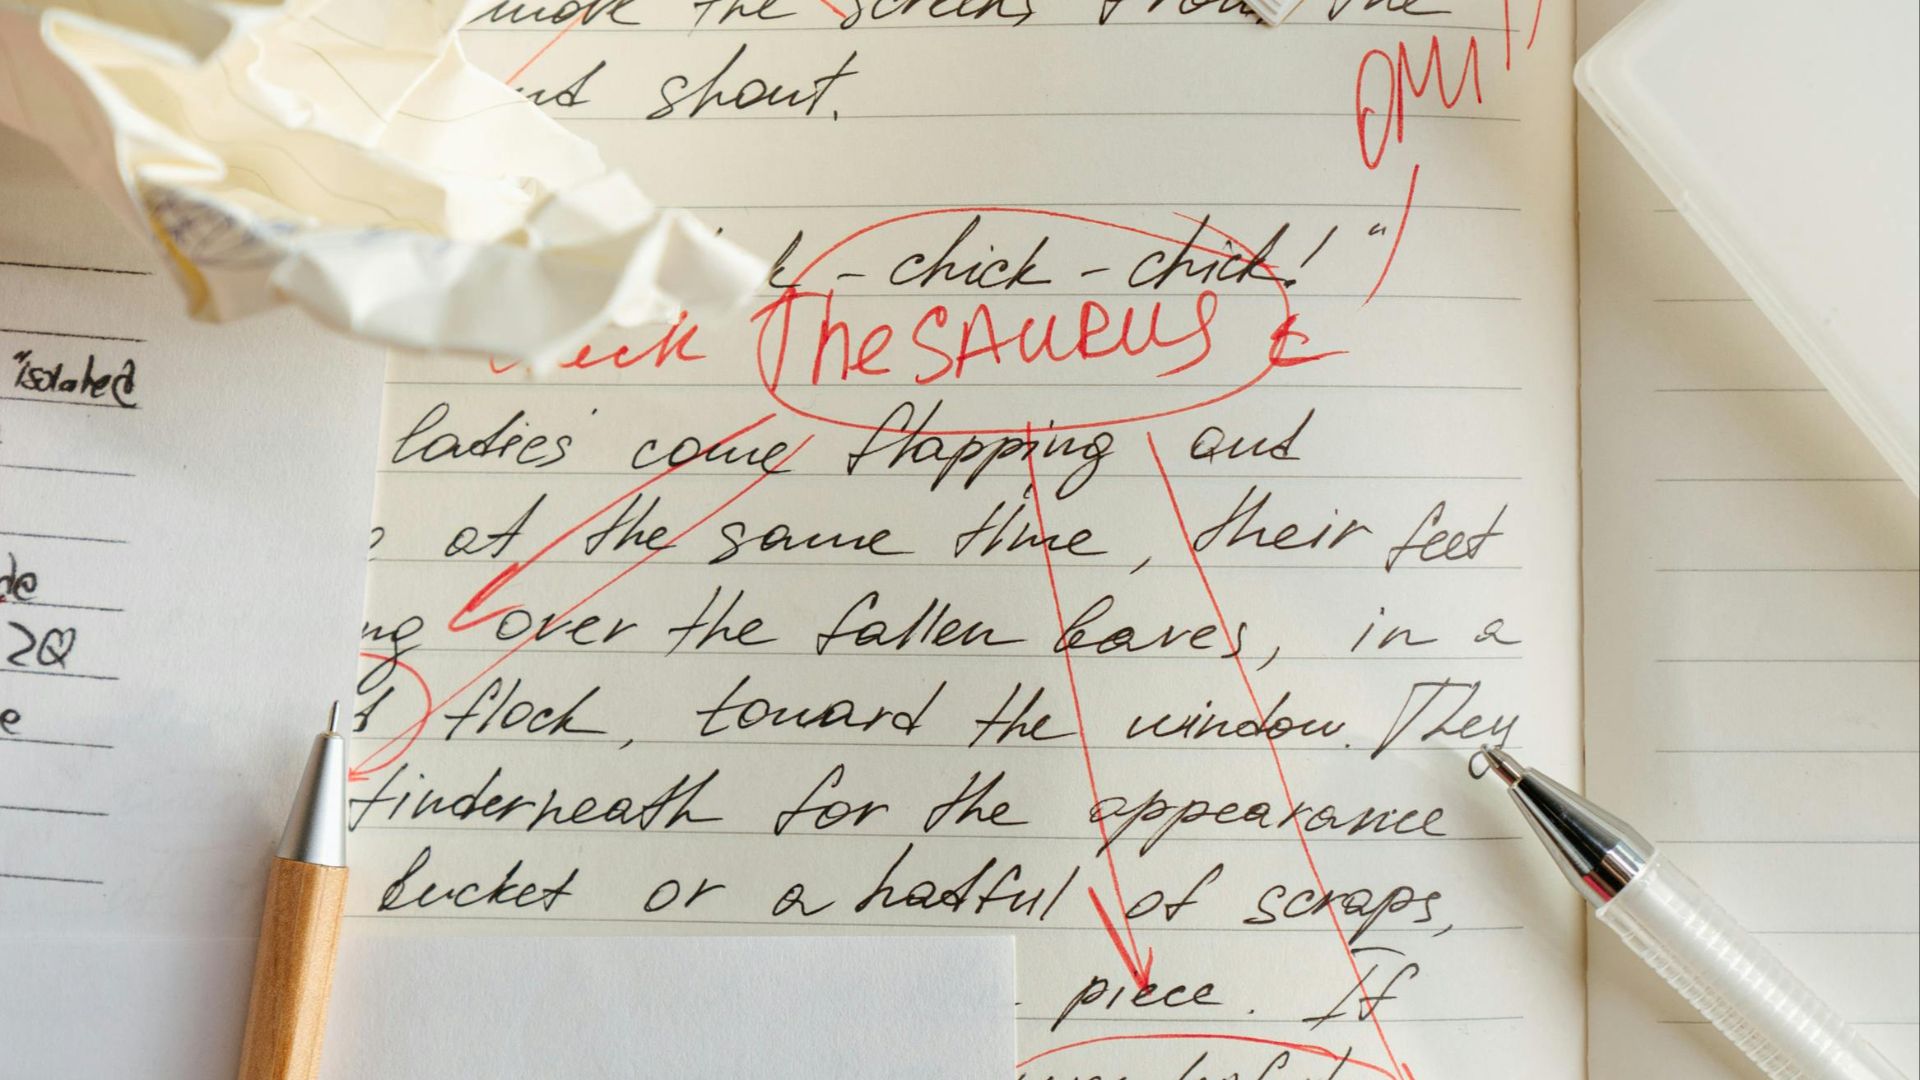 move the screens from the
shout.
OMU
- chick - chick!"
check TheSAURUS
ladies come flapping out
at the same time, their feet
over the fallen leaves, in a
flock, toward the window. They
underneath for the appearance
bucket or a hatful of scraps,
piece. If
"isolated
2Q